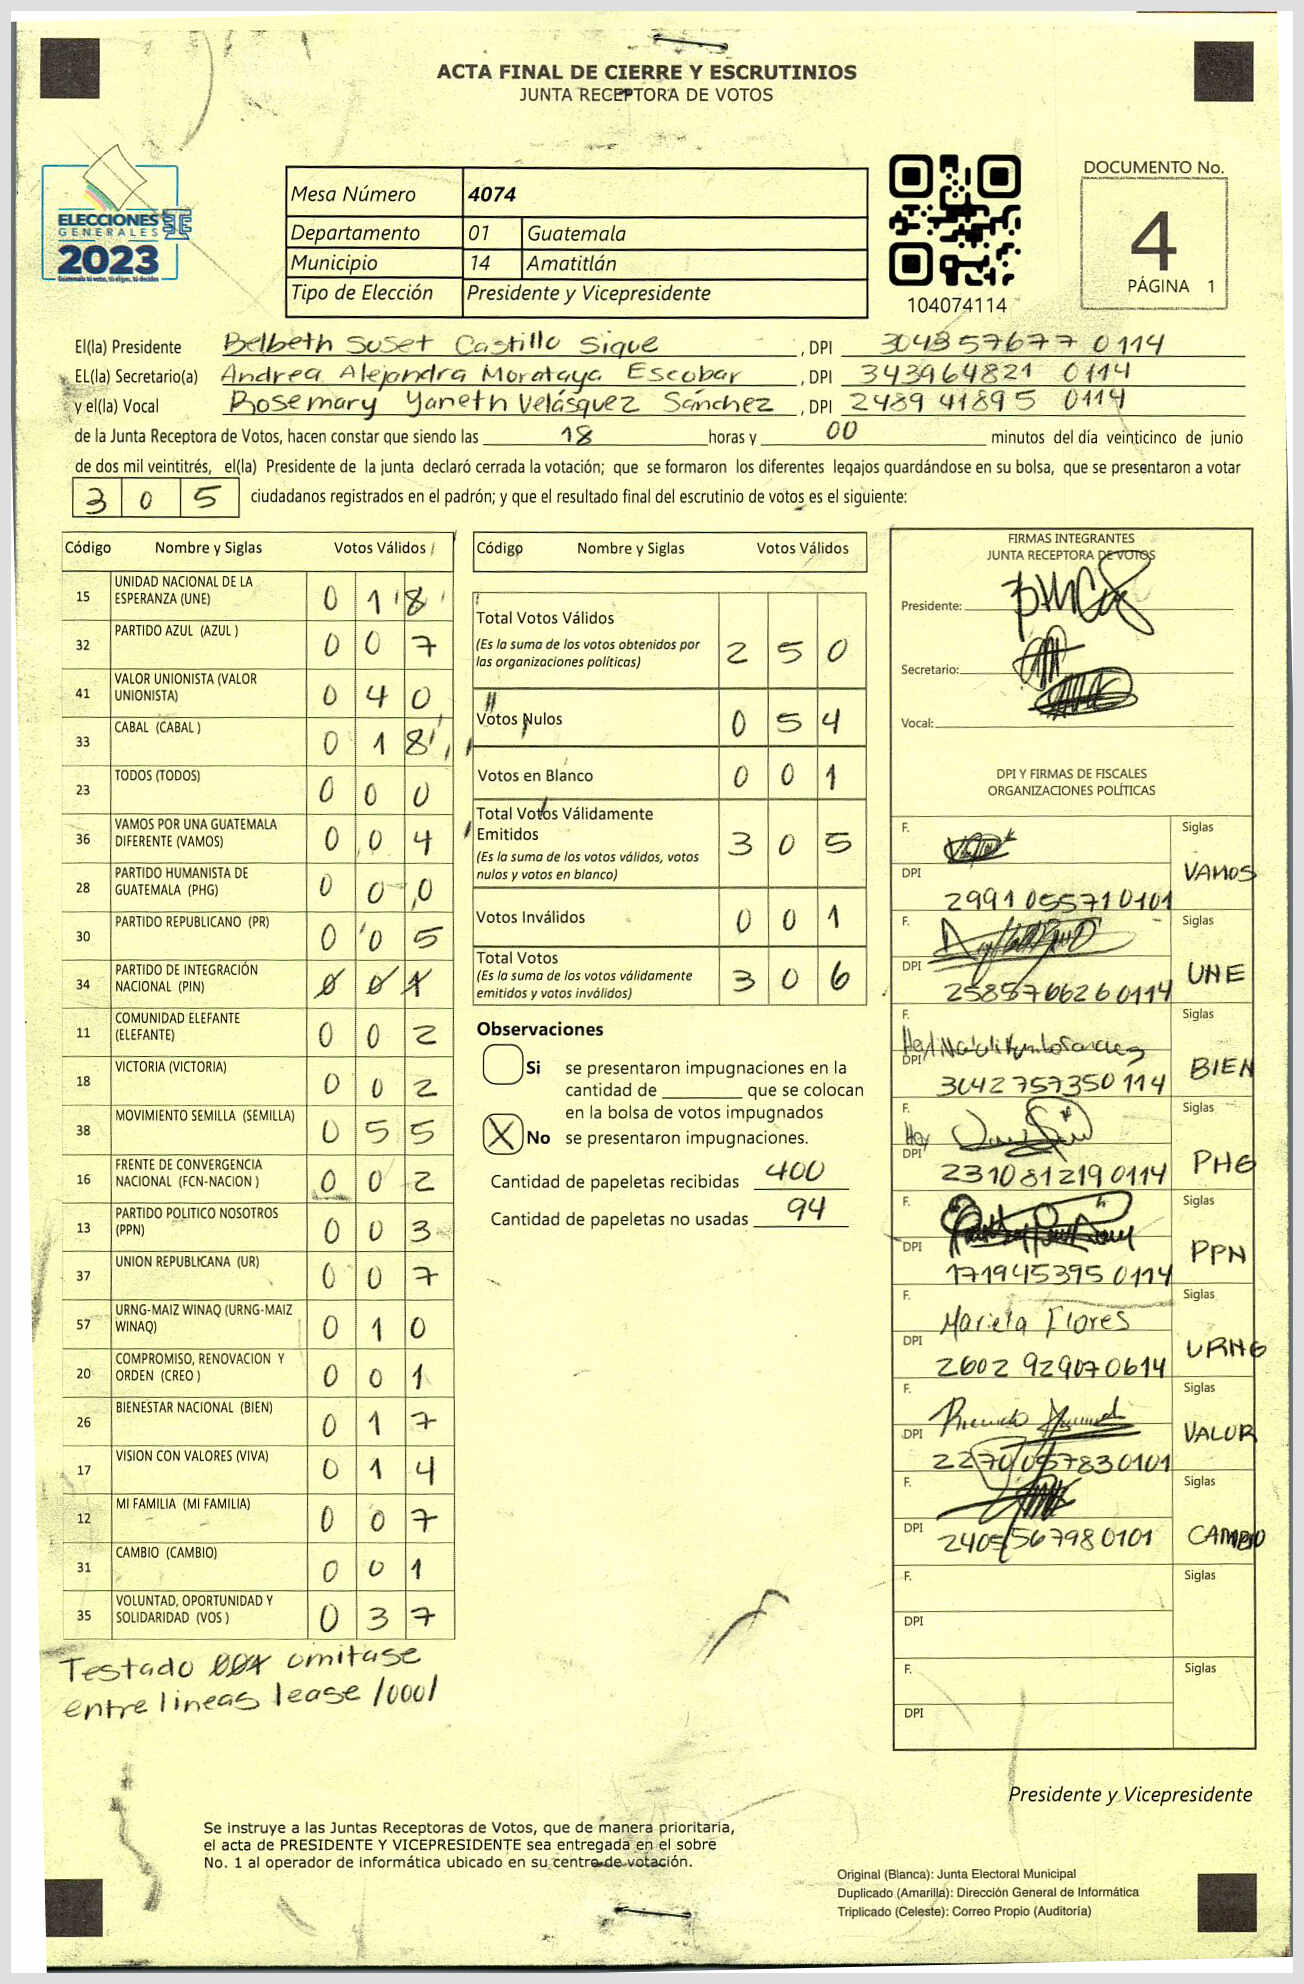 ACTA FINAL DE CIERRE Y ESCRUTINIOS
JUNTA RECEPTORA DE VOTOS
ELECCIONES
GENERALES
2023
Mesa Número 4074
Departamento 01 Guatemala
Municipio 14 Amatitlán
Tipo de Elección Presidente y Vicepresidente
104074114
DOCUMENTO No.
4
PÁGINA 1
El(la) Presidente Belbeth Suset Castillo Sique , DPI 304857677 0114
EL(la) Secretario(a) Andrea Alejandra Morataya Escobar , DPI 343964821 0114
y el(la) Vocal Rosemary Yaneth Velásquez Sánchez , DPI 248941895 0114
de la Junta Receptora de Votos, hacen constar que siendo las 18 horas y 00 minutos del día veinticinco de junio
de dos mil veintitrés, el(la) Presidente de la junta declaró cerrada la votación; que se formaron los diferentes legajos guardándose en su bolsa, que se presentaron a votar
3 0 5 ciudadanos registrados en el padrón; y que el resultado final del escrutinio de votos es el siguiente:
Código Nombre y Siglas Votos Válidos
15 UNIDAD NACIONAL DE LA ESPERANZA (UNE) 0 1 8
32 PARTIDO AZUL (AZUL ) 0 0 7
41 VALOR UNIONISTA (VALOR UNIONISTA) 0 4 0
33 CABAL (CABAL ) 0 1 8
23 TODOS (TODOS) 0 0 0
36 VAMOS POR UNA GUATEMALA DIFERENTE (VAMOS) 0 0 4
28 PARTIDO HUMANISTA DE GUATEMALA (PHG) 0 0 0
30 PARTIDO REPUBLICANO (PR) 0 0 5
34 PARTIDO DE INTEGRACIÓN NACIONAL (PIN) 0 0 1
11 COMUNIDAD ELEFANTE (ELEFANTE) 0 0 2
18 VICTORIA (VICTORIA) 0 0 2
38 MOVIMIENTO SEMILLA (SEMILLA) 0 5 5
16 FRENTE DE CONVERGENCIA NACIONAL (FCN-NACION ) 0 0 2
13 PARTIDO POLITICO NOSOTROS (PPN) 0 0 3
37 UNION REPUBLICANA (UR) 0 0 7
57 URNG-MAIZ WINAQ (URNG-MAIZ WINAQ) 0 1 0
20 COMPROMISO, RENOVACION Y ORDEN (CREO ) 0 0 1
26 BIENESTAR NACIONAL (BIEN) 0 1 7
17 VISION CON VALORES (VIVA) 0 1 4
12 MI FAMILIA (MI FAMILIA) 0 0 7
31 CAMBIO (CAMBIO) 0 0 1
35 VOLUNTAD, OPORTUNIDAD Y SOLIDARIDAD (VOS ) 0 3 7
Testado 001 omitase
entre lineas lease /000/
Código Nombre y Siglas Votos Válidos
Total Votos Válidos
(Es la suma de los votos obtenidos por
las organizaciones políticas) 2 5 0
Votos Nulos 0 5 4
Votos en Blanco 0 0 1
Total Votos Válidamente
Emitidos
(Es la suma de los votos válidos, votos
nulos y votos en blanco) 3 0 5
Votos Inválidos 0 0 1
Total Votos
(Es la suma de los votos válidamente
emitidos y votos inválidos) 3 0 6
Observaciones
Si se presentaron impugnaciones en la
cantidad de ________ que se colocan
en la bolsa de votos impugnados
X No se presentaron impugnaciones.
Cantidad de papeletas recibidas 400
Cantidad de papeletas no usadas 94
FIRMAS INTEGRANTES
JUNTA RECEPTORA DE VOTOS
Presidente:
Secretario:
Vocal:
DPI Y FIRMAS DE FISCALES
ORGANIZACIONES POLÍTICAS
F. Siglas
DPI 2991055710101 VAMOS
F. Siglas
DPI 2585706260114 UNE
F. Siglas
DPI 3042757350114 BIEN
F. Siglas
DPI 2310812190114 PHG
F. Siglas
DPI 1719453950114 PPN
F. Mariela Flores Siglas
DPI 2602929070614 URNG
F. Siglas
DPI 2270057830101 VALOR
F. Siglas
DPI 2405567980101 CAMBIO
F. Siglas
DPI
F. Siglas
DPI
Presidente y Vicepresidente
Se instruye a las Juntas Receptoras de Votos, que de manera prioritaria,
el acta de PRESIDENTE Y VICEPRESIDENTE sea entregada en el sobre
No. 1 al operador de informática ubicado en su centro de votación.
Original (Blanca): Junta Electoral Municipal
Duplicado (Amarilla): Dirección General de Informática
Triplicado (Celeste): Correo Propio (Auditoría)